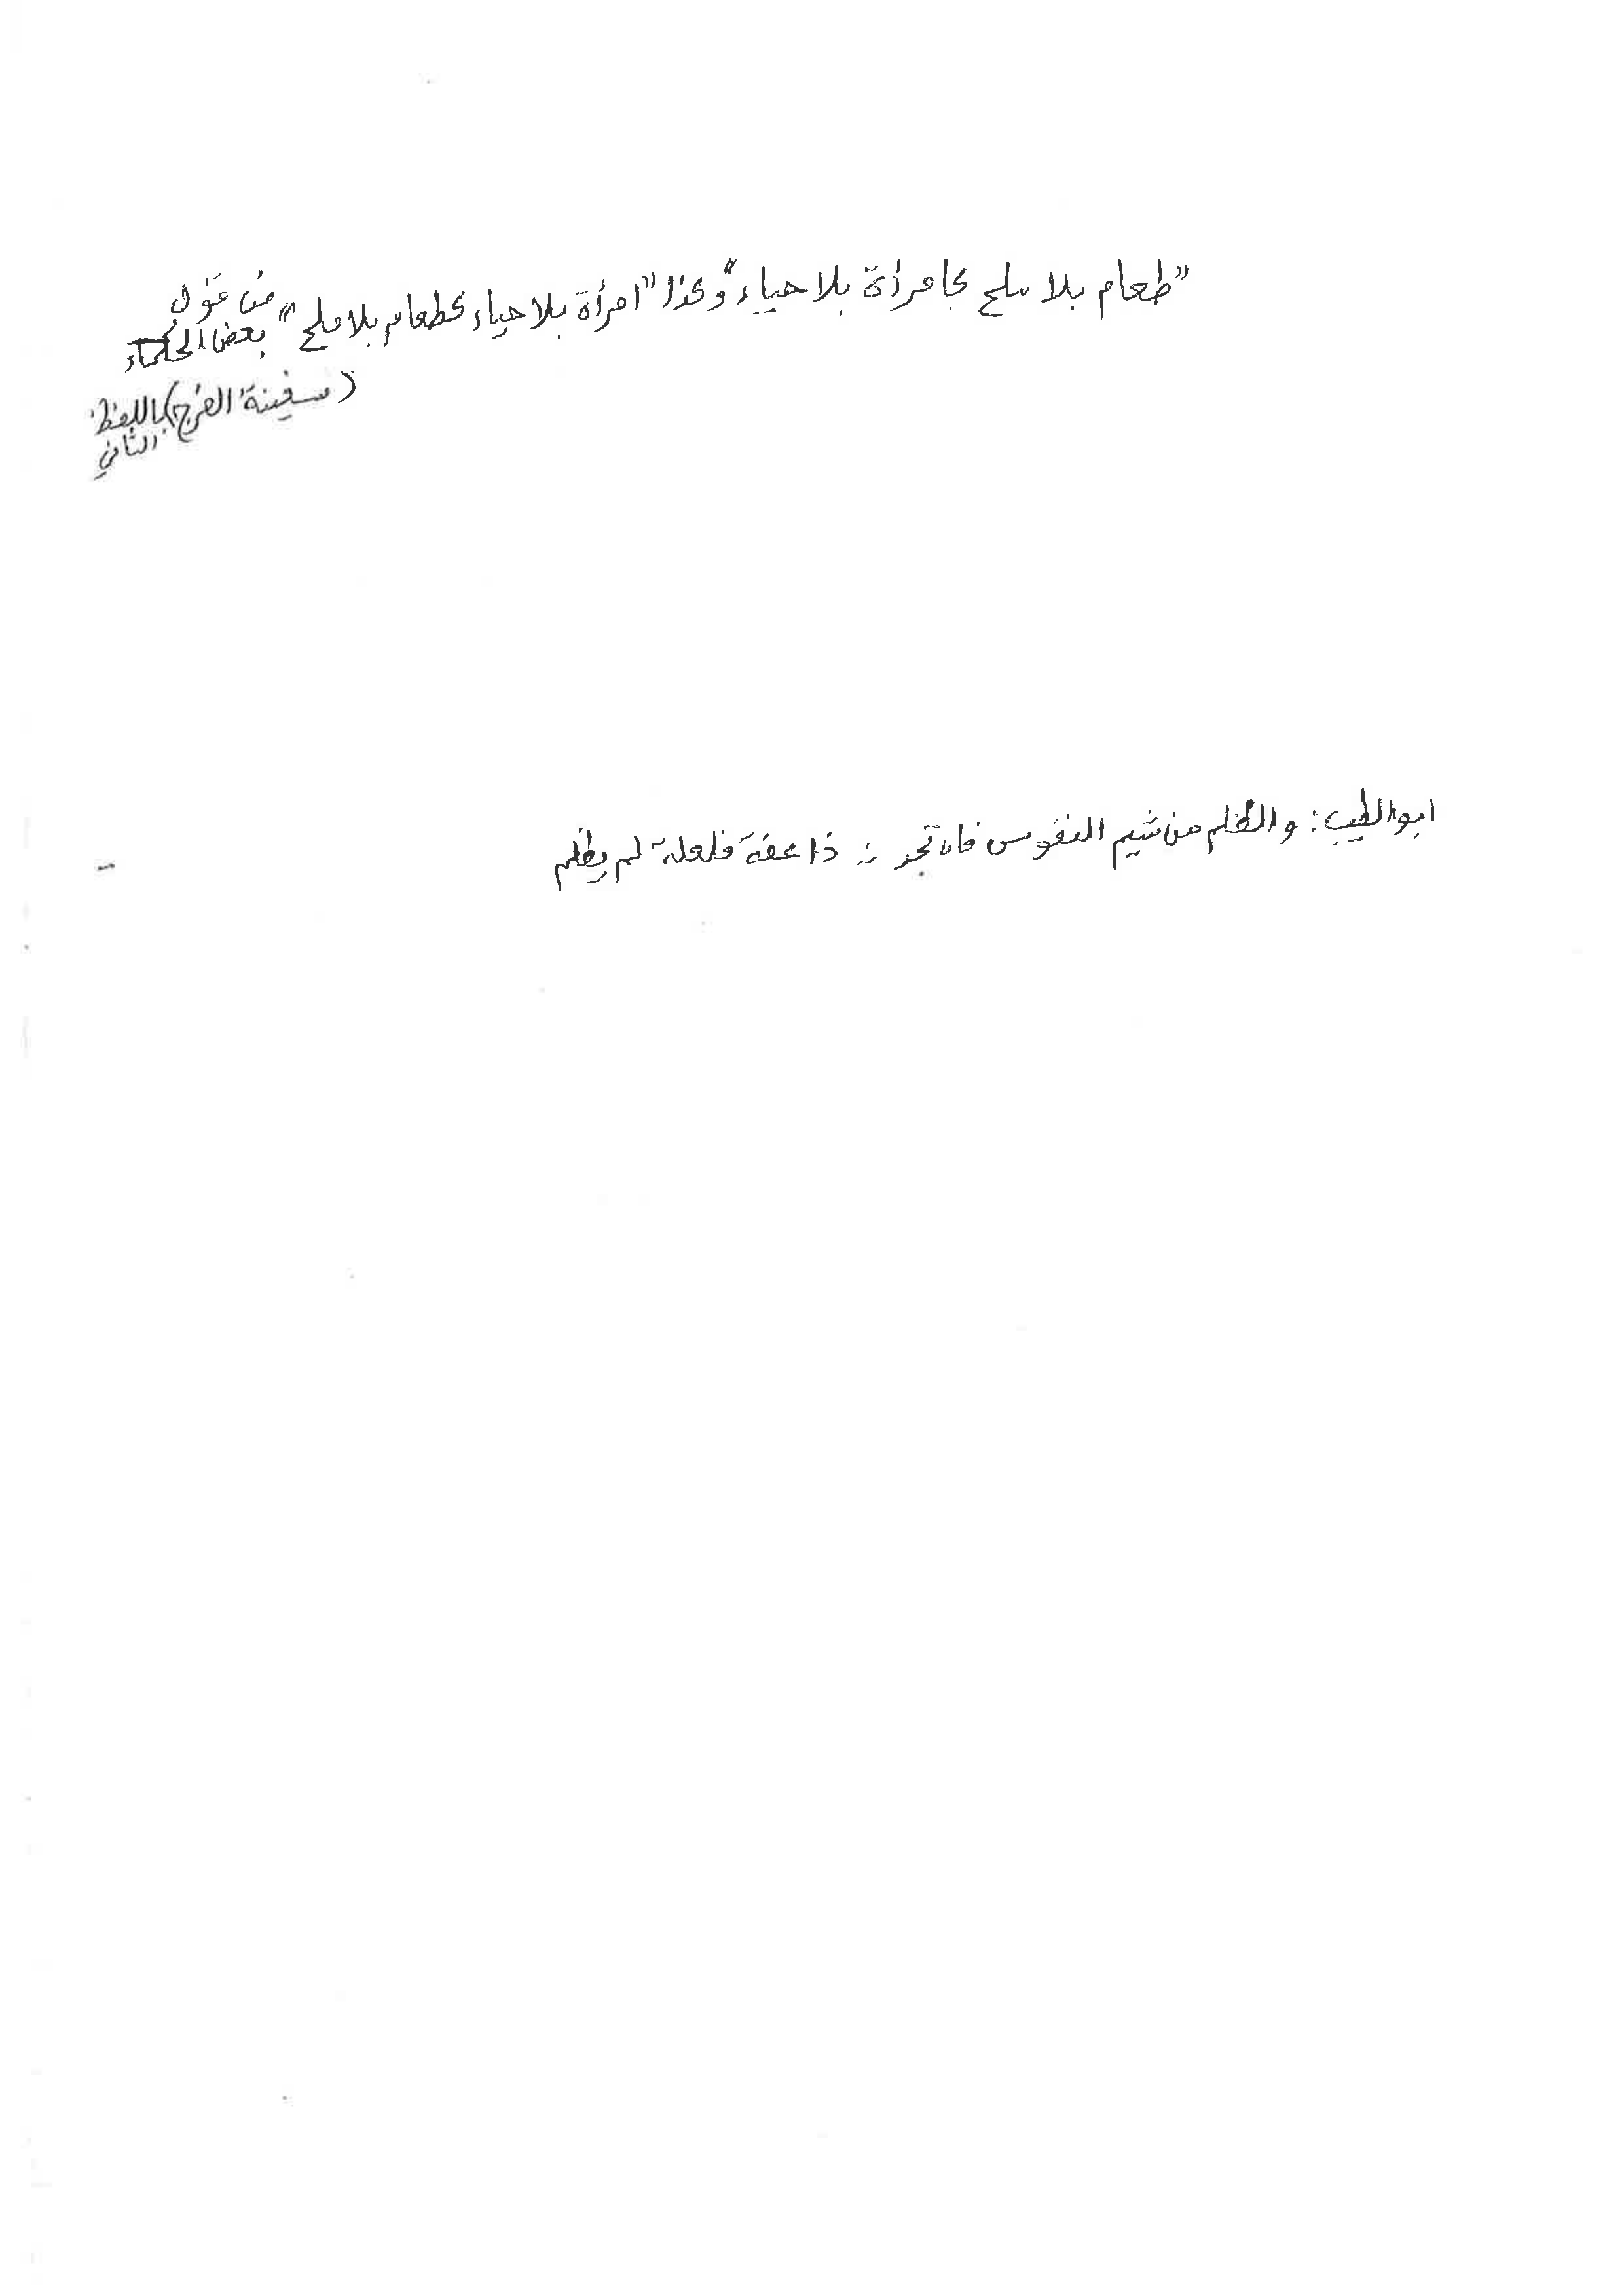 "طعام بلا ملح كامرأة بلا حياء" وكذا "امرأة بلا حياء كطعام بلا ملح" من قول
بعض الحكماء
(سفينة الفرج) باللفظ
الثاني
ابو الطيب: والظلم من شيم النفوس فان تجد :: ذا عفة فلعلة لم يظلم